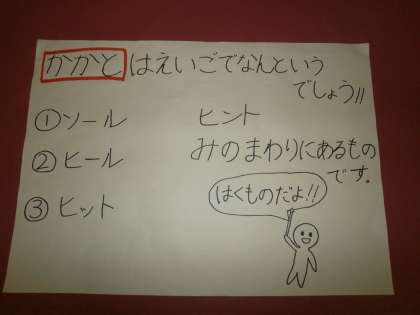 かかとはえいごでなんという
でしょう!!
①ソール
②ヒール
③ヒット
ヒント
みのまわりにあるもの
です。
はくものだよ!!